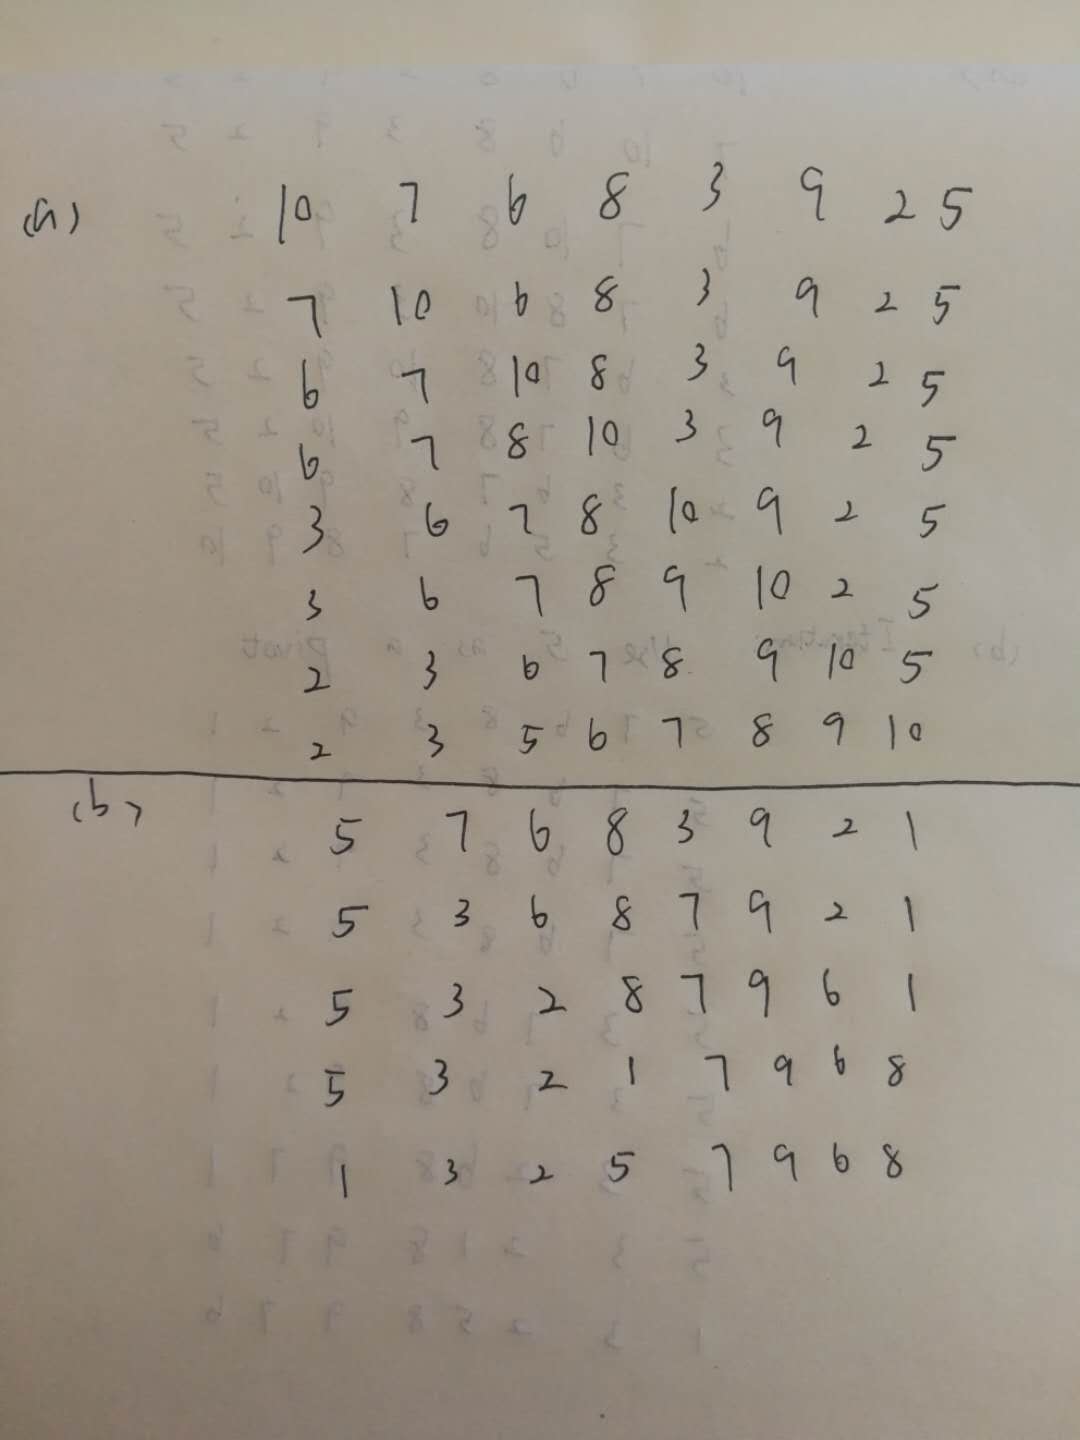 (a) 10 7 6 8 3 9 2 5
7 10 6 8 3 9 2 5
6 7 10 8 3 9 2 5
6 7 8 10 3 9 2 5
3 6 7 8 10 9 2 5
3 6 7 8 9 10 2 5
2 3 6 7 8 9 10 5
2 3 5 6 7 8 9 10
(b) 5 7 6 8 3 9 2 1
5 3 6 8 7 9 2 1
5 3 2 8 7 9 6 1
5 3 2 1 7 9 6 8
1 3 2 5 7 9 6 8